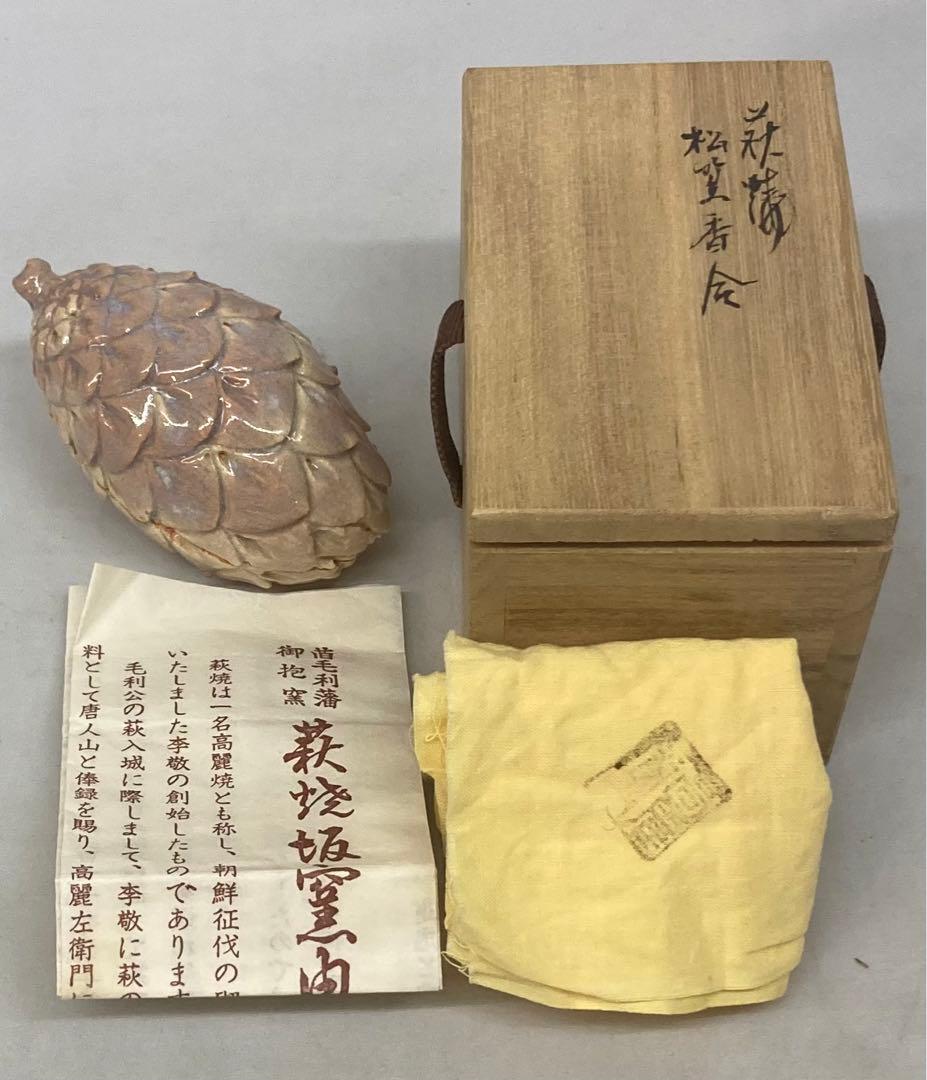 萩焼
松笠香合
旧毛利藩
御抱窯
萩焼坂窯由
萩焼は一名高麗焼とも称し、朝鮮征伐の
いたしました李敬の創始したものであります
毛利公の萩入城に際しまして、李敬に萩の
料として唐人山と俸録を賜り、高麗左衛門に